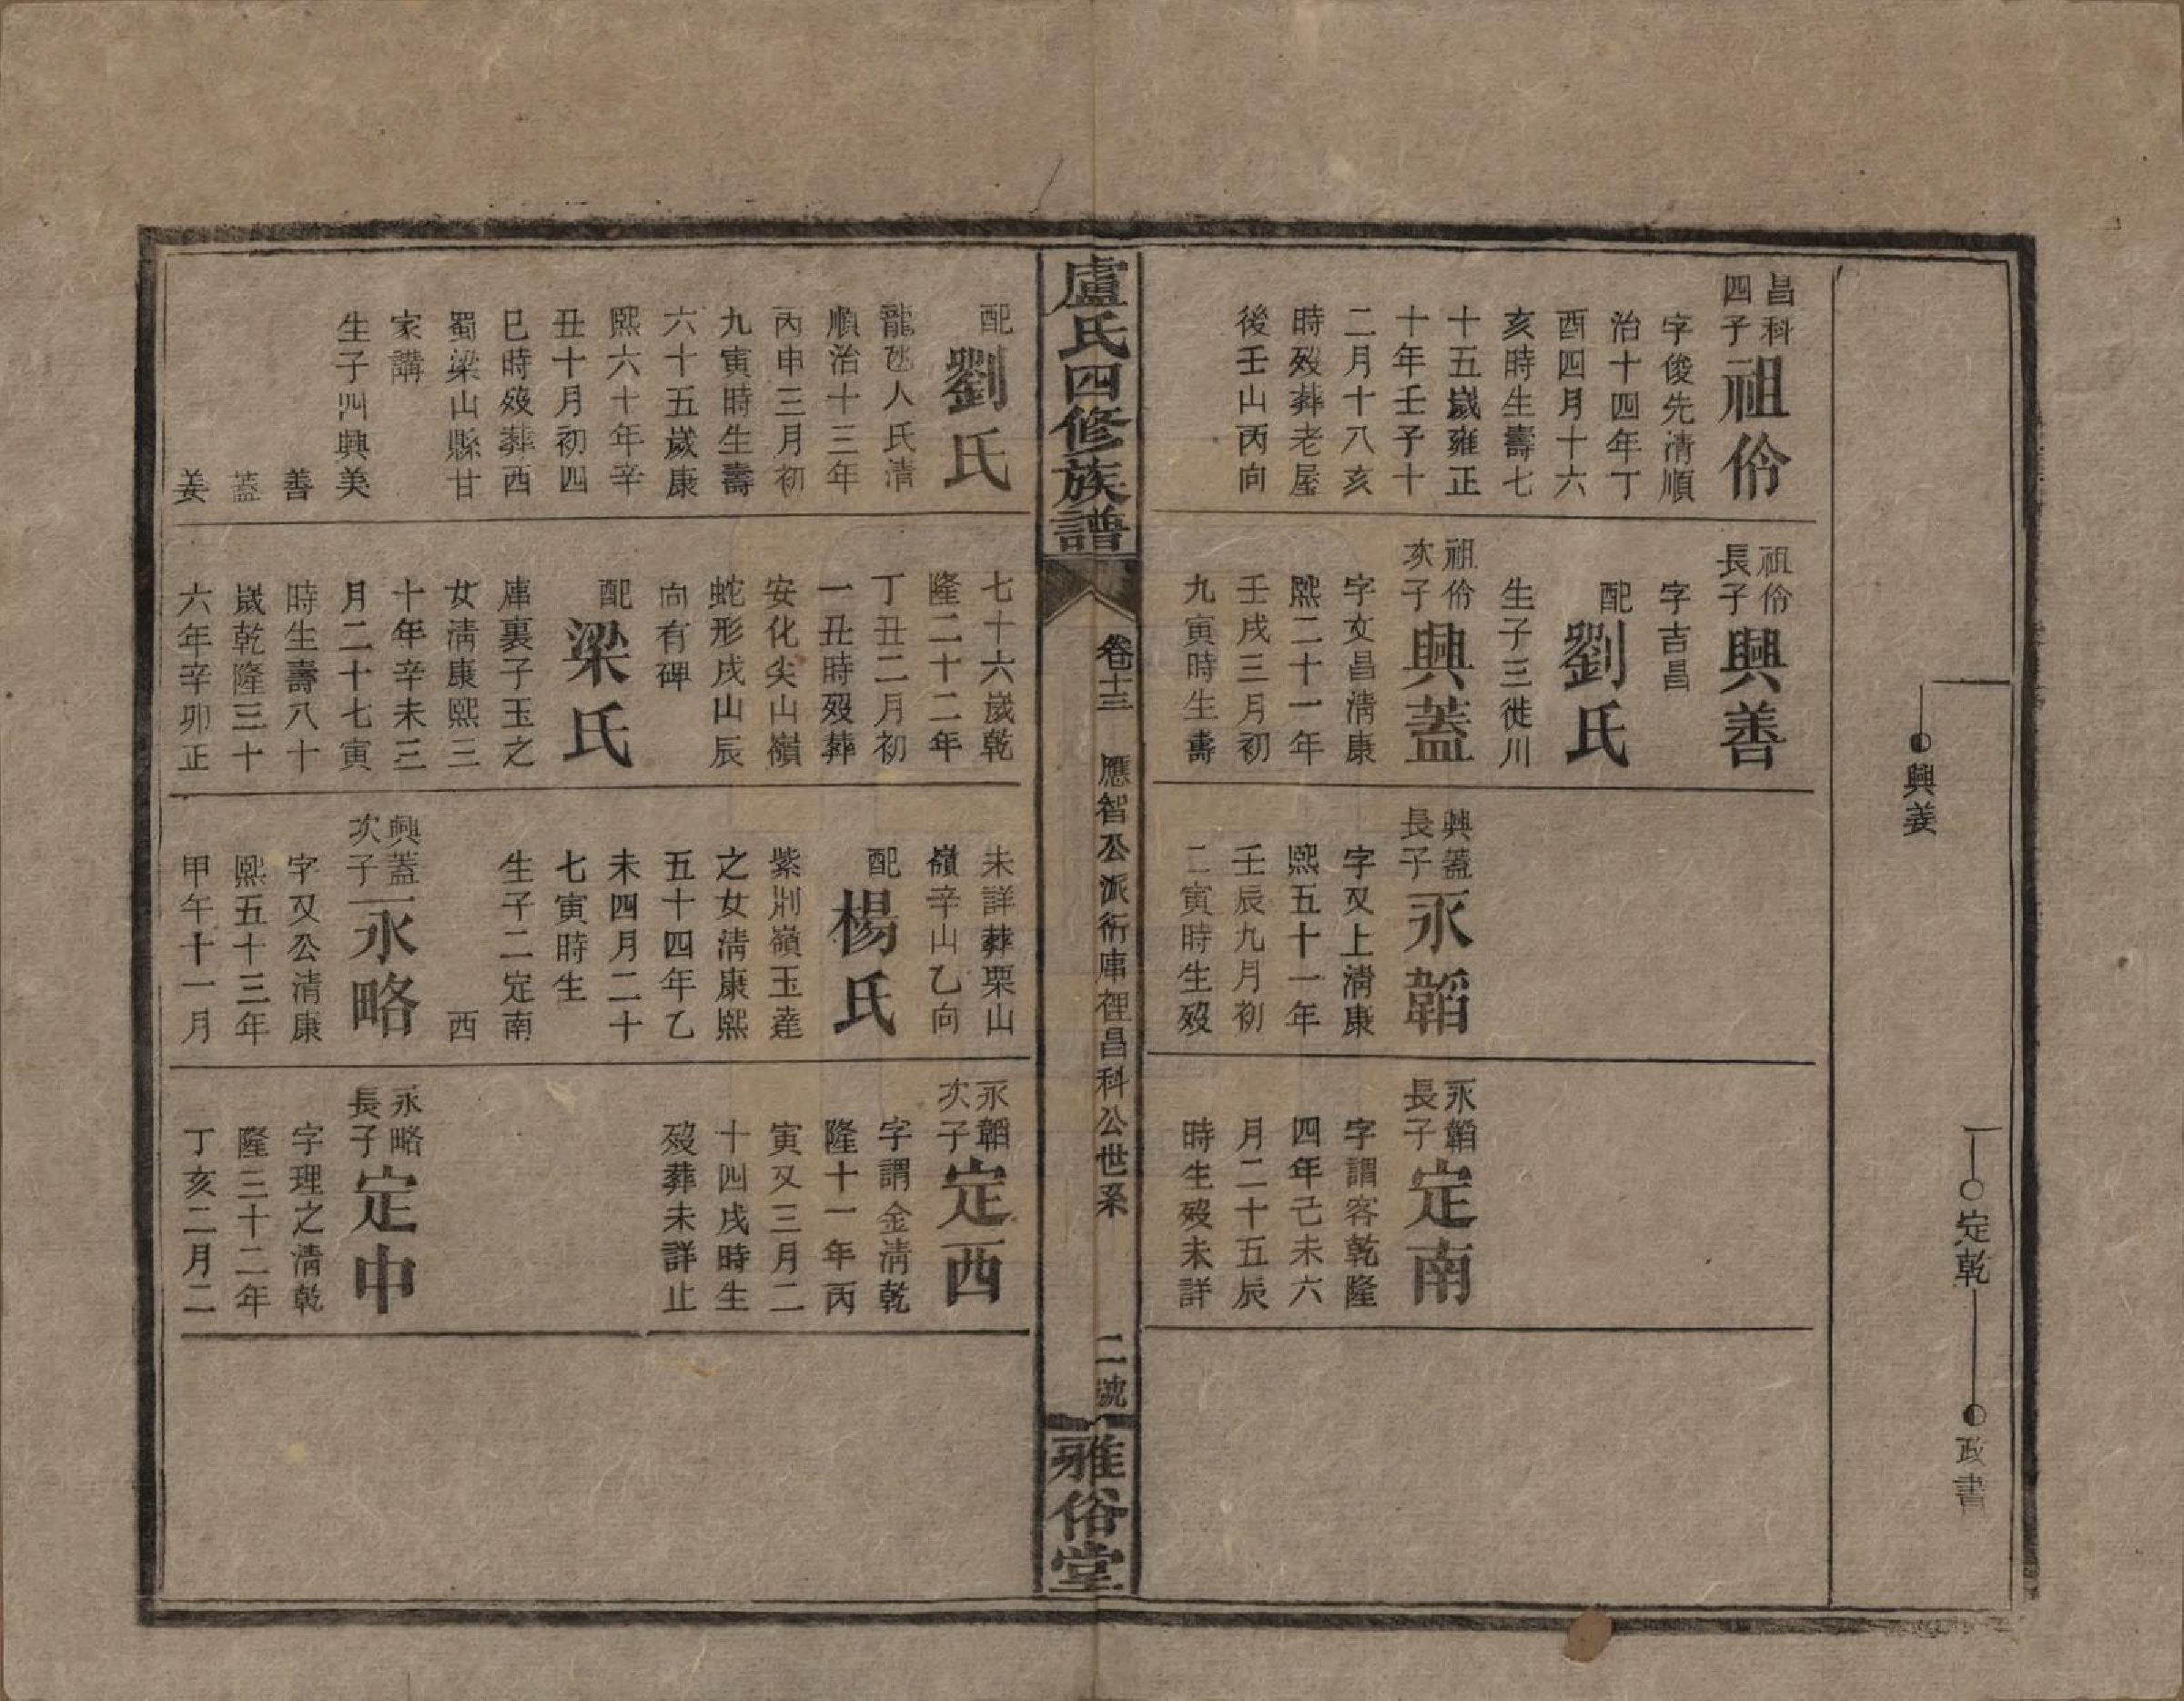 興姜
定乾
政書
昌科
四子
祖伶
字俊先清順
治十四年丁
酉四月十六
亥時生壽七
十五歲雍正
十年壬子十
二月十八亥
時歿葬老屋
後壬山丙向
祖伶
長子
興善
字吉昌
配
劉氏
生子三徙川
祖伶
次子
興蓋
字文昌清康
熙二十一年
壬戌三月初
九寅時生壽
興蓋
長子
永韜
字又上清康
熙五十一年
壬辰九月初
二寅時生歿
永韜
長子
定南
字謂客乾隆
四年己未六
月二十五辰
時生歿未詳
盧氏四修族譜
卷十三
應智公派衖庫裡昌科公世系
二號
雅俗堂
配
劉氏
龍氹人氏清
順治十三年
丙申三月初
九寅時生壽
六十五歲康
熙六十年辛
丑十月初四
巳時歿葬西
蜀梁山縣甘
家講
生子四興美
善
蓋
姜
七十六歲乾
隆二十二年
丁丑二月初
一丑時歿葬
安化尖山嶺
蛇形戌山辰
向有碑
配
梁氏
庫裏子玉之
女清康熙三
十年辛未三
月二十七寅
時生壽八十
歲乾隆三十
六年辛卯正
未詳葬栗山
嶺辛山乙向
配
楊氏
紫荊嶺玉達
之女清康熙
五十四年乙
未四月二十
七寅時生
生子二定南
西
興蓋
次子
永略
字又公清康
熙五十三年
甲午十一月
永韜
次子
定西
字謂金清乾
隆十一年丙
寅又三月二
十四戌時生
歿葬未詳止
永略
長子
定中
字理之清乾
隆三十二年
丁亥二月二